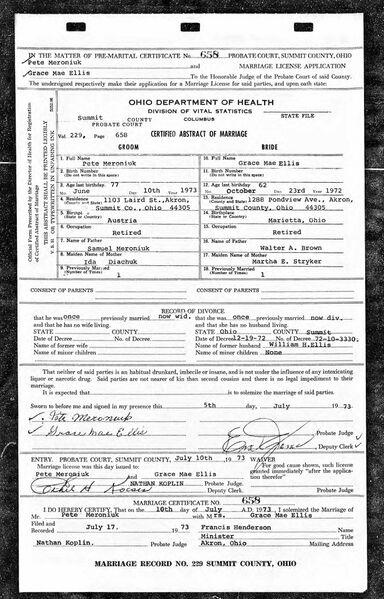 IN THE MATTER OF PRE-MARITAL CERTIFICATE No. 658 PROBATE COURT, SUMMIT COUNTY, OHIO
Pete Meroniuk
and MARRIAGE LICENSE APPLICATION
Grace Mae Ellis To the Honorable Judge of the Probate Court of said County.
The undersigned respectively make their application for a Marriage License for said parties, and upon oath state:
Official Form Prescribed by the Director of Health for Registration of Certified Abstract of Marriage
THIS ABSTRACT SHALL BE PRINTED LEGIBLY OR TYPEWRITTEN IN UNFADING INK
OHIO DEPARTMENT OF HEALTH
DIVISION OF VITAL STATISTICS
Summit COUNTY COLUMBUS STATE FILE
PROBATE COURT
Vol. 229, Page 658 CERTIFIED ABSTRACT OF MARRIAGE
GROOM BRIDE
1. Full Name Pete Meroniuk 10. Full Name Grace Mae Ellis
2. Birth Number (Do not write in this space) 11. Birth Number (Do not write in this space)
3. Age last birthday. 77 12. Age last birthday 62
June 10th 1973 October 23rd 1972
4. Residence (County and State) 1103 Laird St., Akron, Summit Co., Ohio 44305 13. Residence (County and State) 1288 Pondview Ave., Akron, Summit County, Ohio 44305
5. Birthplace (State or County) Austria 14. Birthplace (State or County) Marietta, Ohio
6. Occupation Retired 15. Occupation Retired
7. Name of Father Samuel Meroniuk 16. Name of Father Walter A. Brown
8. Maiden Name of Mother Ida Diachuk 17. Maiden Name of Mother Martha E. Stryker
9. Previously Married (Number of Times) 1 18. Previously Married (Number of Times) 1
CONSENT OF PARENTS CONSENT OF PARENTS
RECORD OF DIVORCE
that he was once previously married now wid. that she was once previously married now div.
and that he has no wife living. and that she has no husband living.
STATE COUNTY STATE Ohio COUNTY Summit
Date of Decree No. of Decree Date of Decree 12-19-72 No. of Decree 72-10-3330
Name of former wife Name of former husband William H. Ellis
Name of minor children Name of minor children None
That neither of said parties is an habitual drunkard, imbecile or insane, and is not under the influence of any intoxicating
liquor or narcotic drug. Said parties are not nearer of kin than second cousins and there is no legal impediment to their
marriage.
It is expected that is to solemnize the marriage of said parties.
Sworn to before me and signed in my presence this 5th day, of July 1973.
Pete Meroniuk
Grace Mae Ellis
Probate Judge
Deputy Clerk
ENTRY. PROBATE COURT, SUMMIT COUNTY, July 10th 1973 WAIVER
Marriage license was this day issued to: For good cause shown, such license
Pete Meroniuk and Grace Mae Ellis granted immediately "after the application therefor"
NATHAN KOPLIN Probate Judge
Deputy Clerk. Probate Judge
MARRIAGE CERTIFICATE NO. 658
I DO HEREBY CERTIFY, That on the 10th day of July A.D. 1973, I solemnized the Marriage of
Mr. Pete Meroniuk with Mrs. Grace Mae Ellis
Filed and
Recorded July 17. 1973 Francis Henderson
Minister Title
Nathan Koplin. Probate Judge Akron, Ohio Mailing Address
MARRIAGE RECORD NO. 229 SUMMIT COUNTY, OHIO